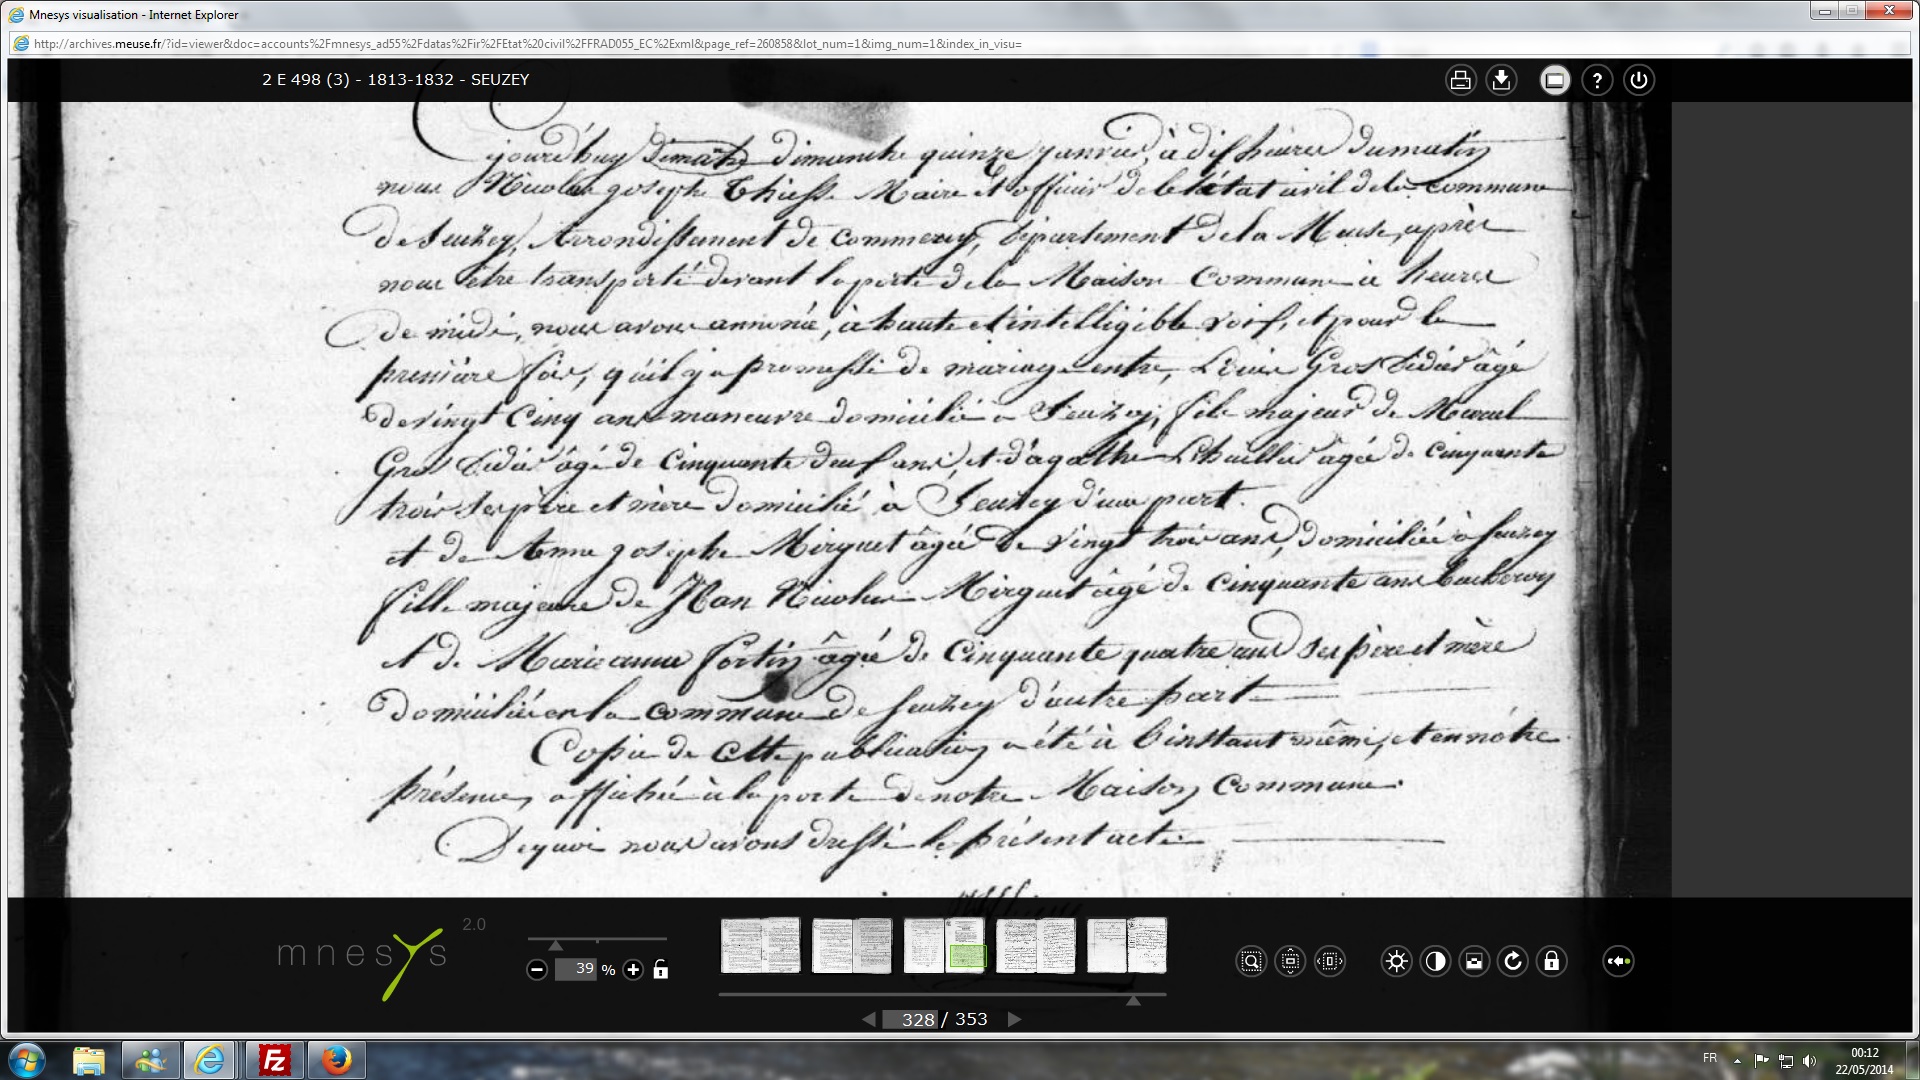 Mnesys visualisation - Internet Explorer
http://archives.meuse.fr/?id=viewer&doc=accounts%2Fmnesys_ad55%2Fdatas%2Fir%2FEtat%20civil%2FFRAD055_EC%2Exml&page_ref=260858&lot_num=1&img_num=1&index_in_visu=
2 E 498 (3) - 1813-1832 - SEUZEY
jourd'huy dimanche quinze janvier, à dix heures du matin
nous Nicolas joseph Thiesse Maire et officier de l'état civil de la commune
de Seuzey, Arrondissement de Commercy, Département de la Meuse, après
nous être transporté devant la porte de la Maison Commune à heures
de midi, nous avons annoncé, à haute et intelligible voix, et pour la
première fois, qu'il y a promesse de mariage entre, Louis Gros Didier âgé
de vingt cinq ans manœuvre domicilié à Seuzey, fils majeur de
Gros Didier âgé de cinquante deux ans, et d'agathe Lhuillier agée de cinquante
trois ses père et mère domicilié à Seuzey d'une part.
et de Anne josephe Mirguet âgée de vingt trois ans, domiciliée à seuzey
fille majeure de Jean Nicolas Mirguet âgé de cinquante ans
et de Marie anne fortin âgée de cinquante quatre ans ses père et mère
domiciliés en la commune de seuzey d'autre part
Copie de cette publication a été à l'instant même, et en nôtre
présence, affichée à la porte de notre Maison Commune.
De quoi nous avons dressé le présent acte.
mnesys 2.0
39 %
328 / 353
FR
00:12
22/05/2014